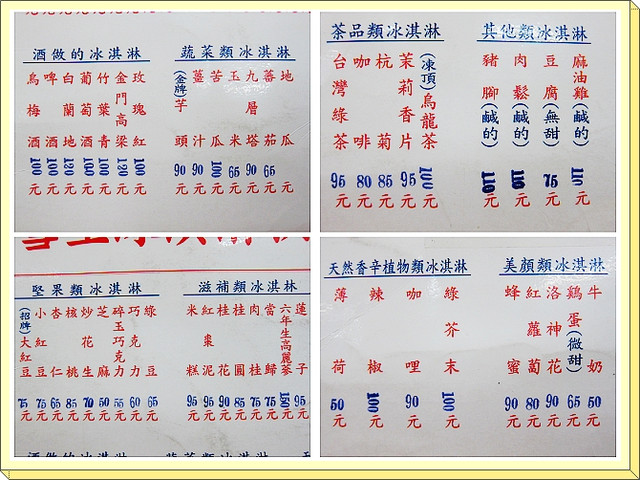 酒做的冰淇淋
烏梅酒100元
啤酒100元
白蘭地120元
葡萄酒100元
竹葉青100元
金門高梁120元
玫瑰紅100元
蔬菜類冰淇淋
(金牌)芋頭90元
薑汁90元
苦瓜100元
玉米65元
九層塔90元
蕃茄65元
地瓜元
茶品類冰淇淋
台灣綠茶95元
咖啡80元
杭菊85元
茉莉香片95元
(凍頂)烏龍茶100元
其他類冰淇淋
豬腳(鹹的)110元
肉鬆(鹹的)110元
豆腐(無甜)75元
麻油雞(鹹的)110元
堅果類冰淇淋
(招牌)大紅豆75元
小紅豆75元
杏仁65元
核桃85元
炒花生70元
芝麻50元
碎玉巧克力55元
巧克力60元
綠豆65元
滋補類冰淇淋
米糕95元
紅棗泥95元
桂花90元
桂圓85元
肉桂75元
當歸75元
六年生高麗蔘150元
蓮子95元
天然香辛植物類冰淇淋
薄荷50元
辣椒100元
咖哩90元
綠芥末100元
美顏類冰淇淋
蜂蜜90元
紅蘿蔔80元
洛神花90元
鷄蛋(微甜)65元
牛奶50元